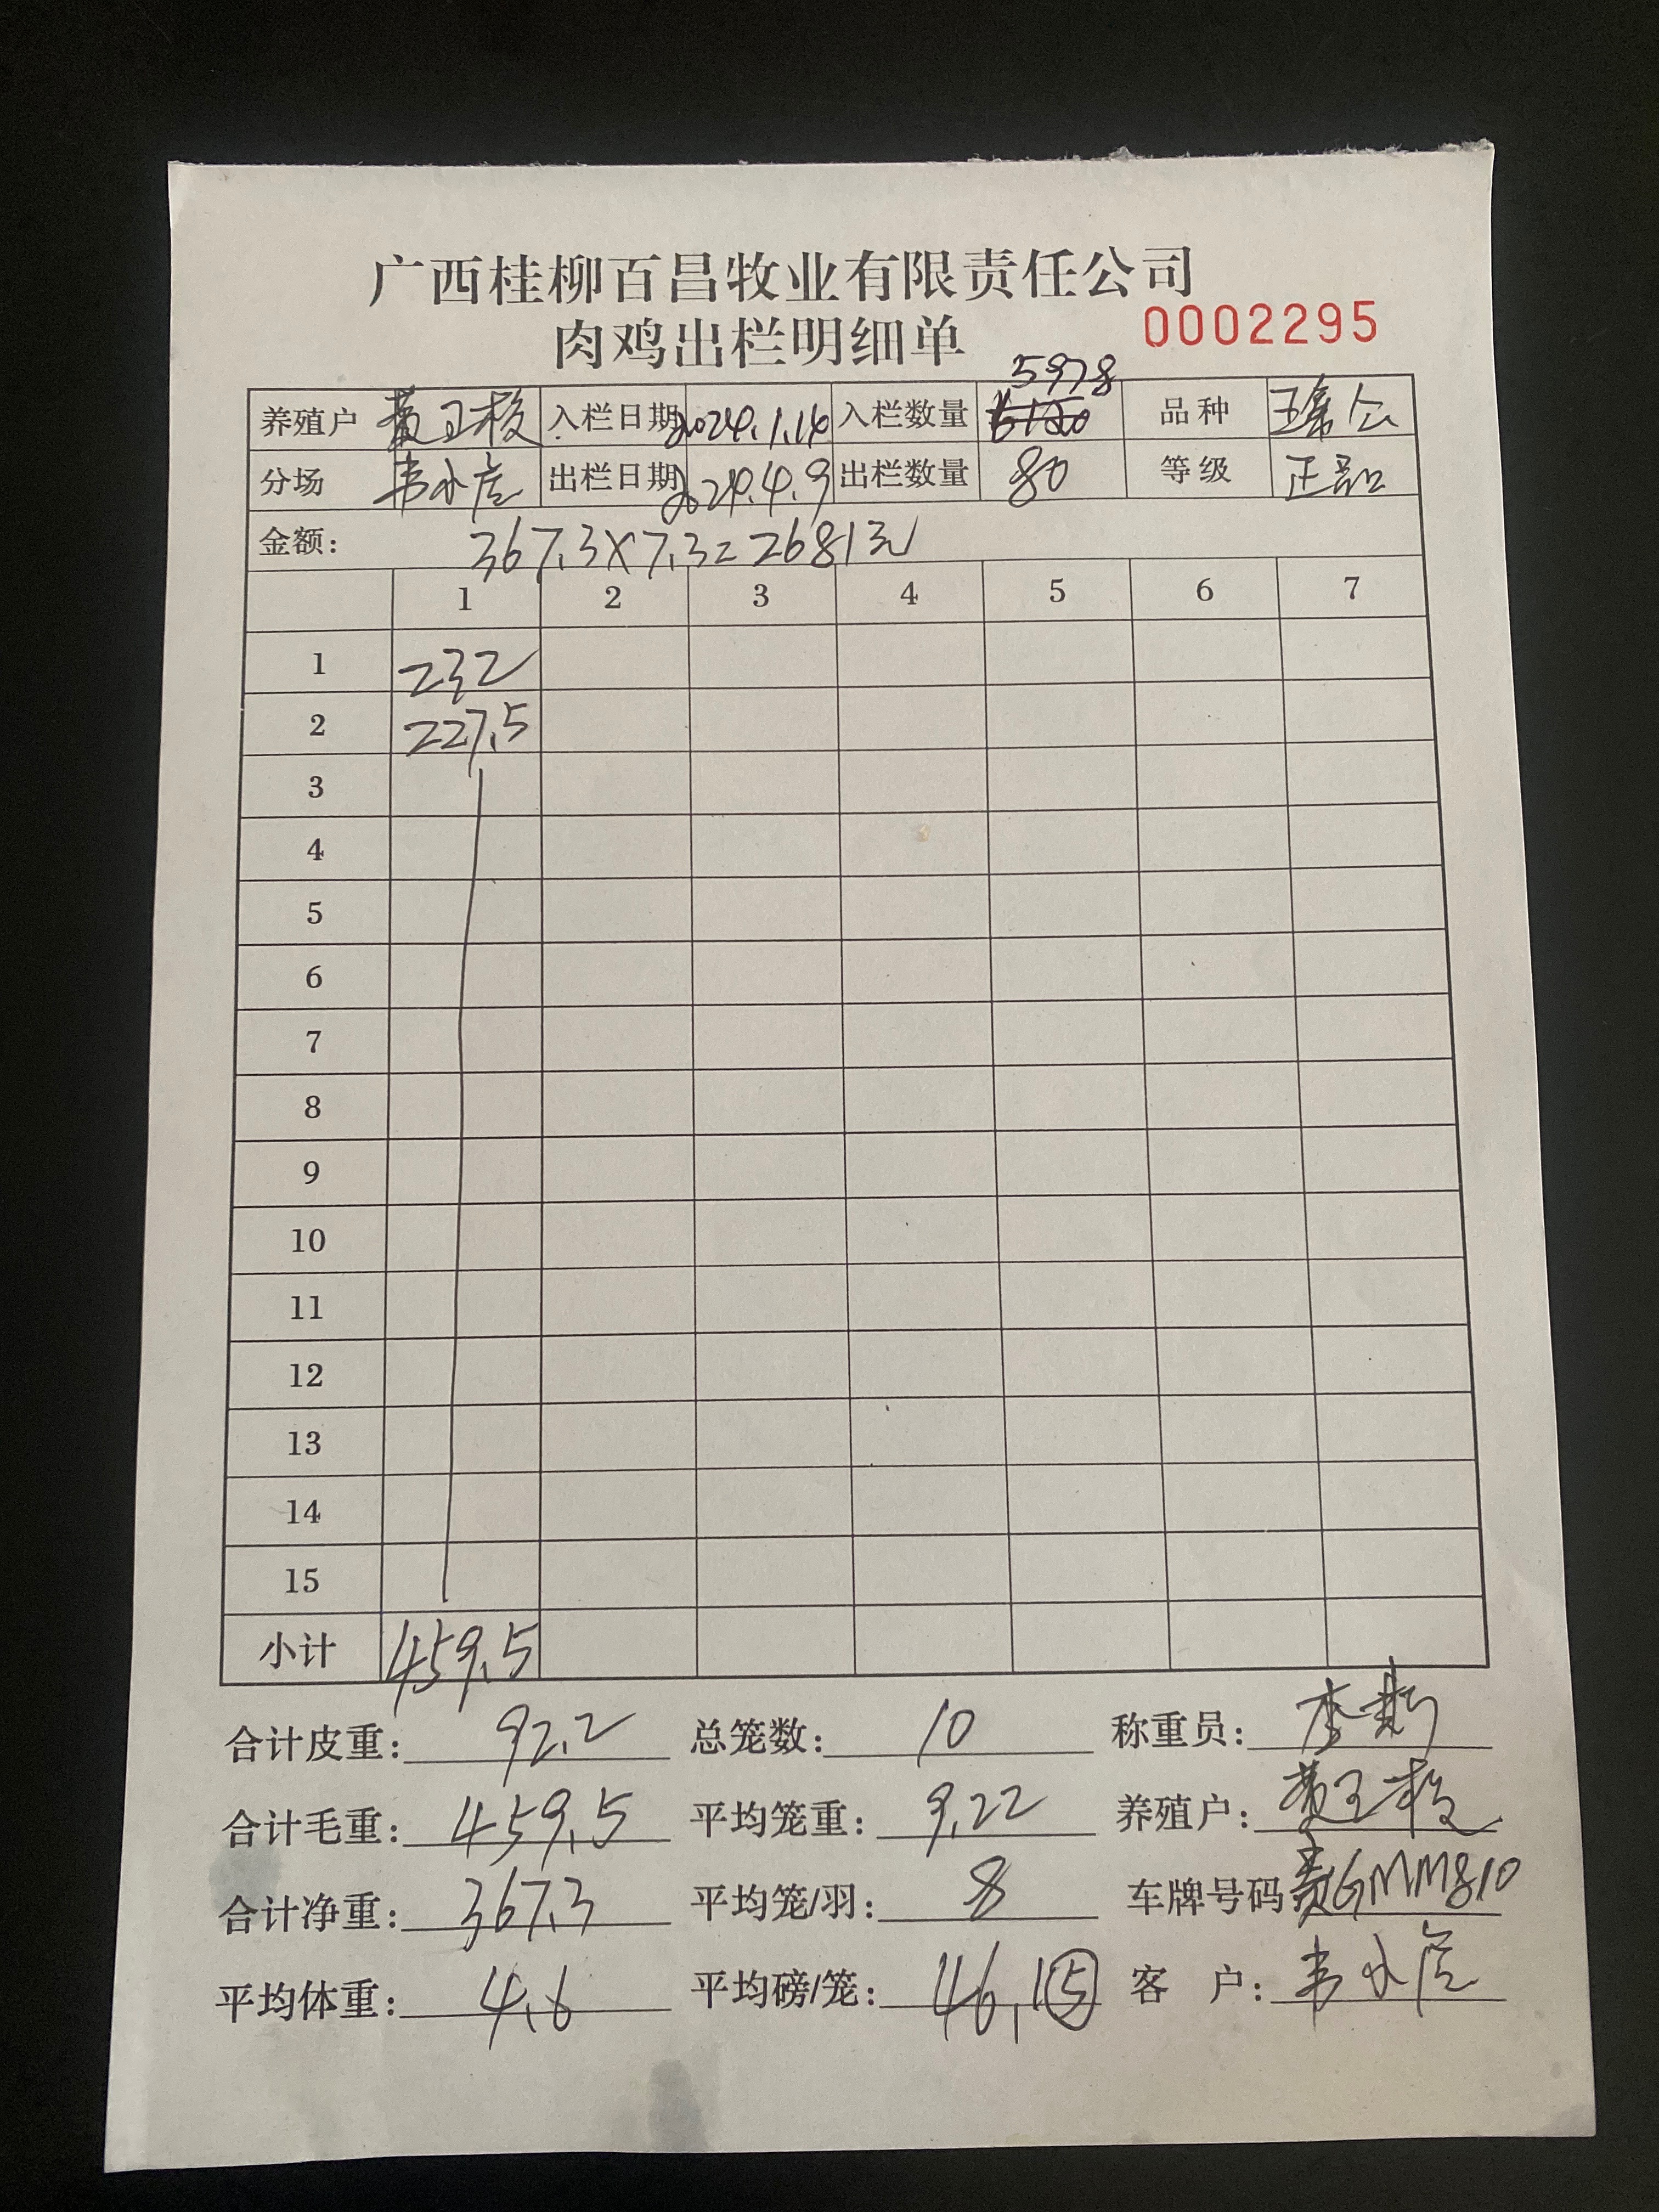 广西桂柳百昌牧业有限责任公司
肉鸡出栏明细单 0002295
5978
养殖户 入栏日期 2024.1.14 入栏数量 6120 品种
分场 韦永 出栏日期 2024.4.9 出栏数量 80 等级 正品
金额: 367.3×7.3=2681元
1 2 3 4 5 6 7
1 232
2 227.5
3
4
5
6
7
8
9
10
11
12
13
14
15
小计 459.5
合计皮重: 92.2 总笼数: 10 称重员: 李
合计毛重: 459.5 平均笼重: 9.22 养殖户:
合计净重: 367.3 平均笼/羽: 8 车牌号码 GMM810
平均体重: 4.6 平均磅/笼: 46.1 5 客户: 韦永